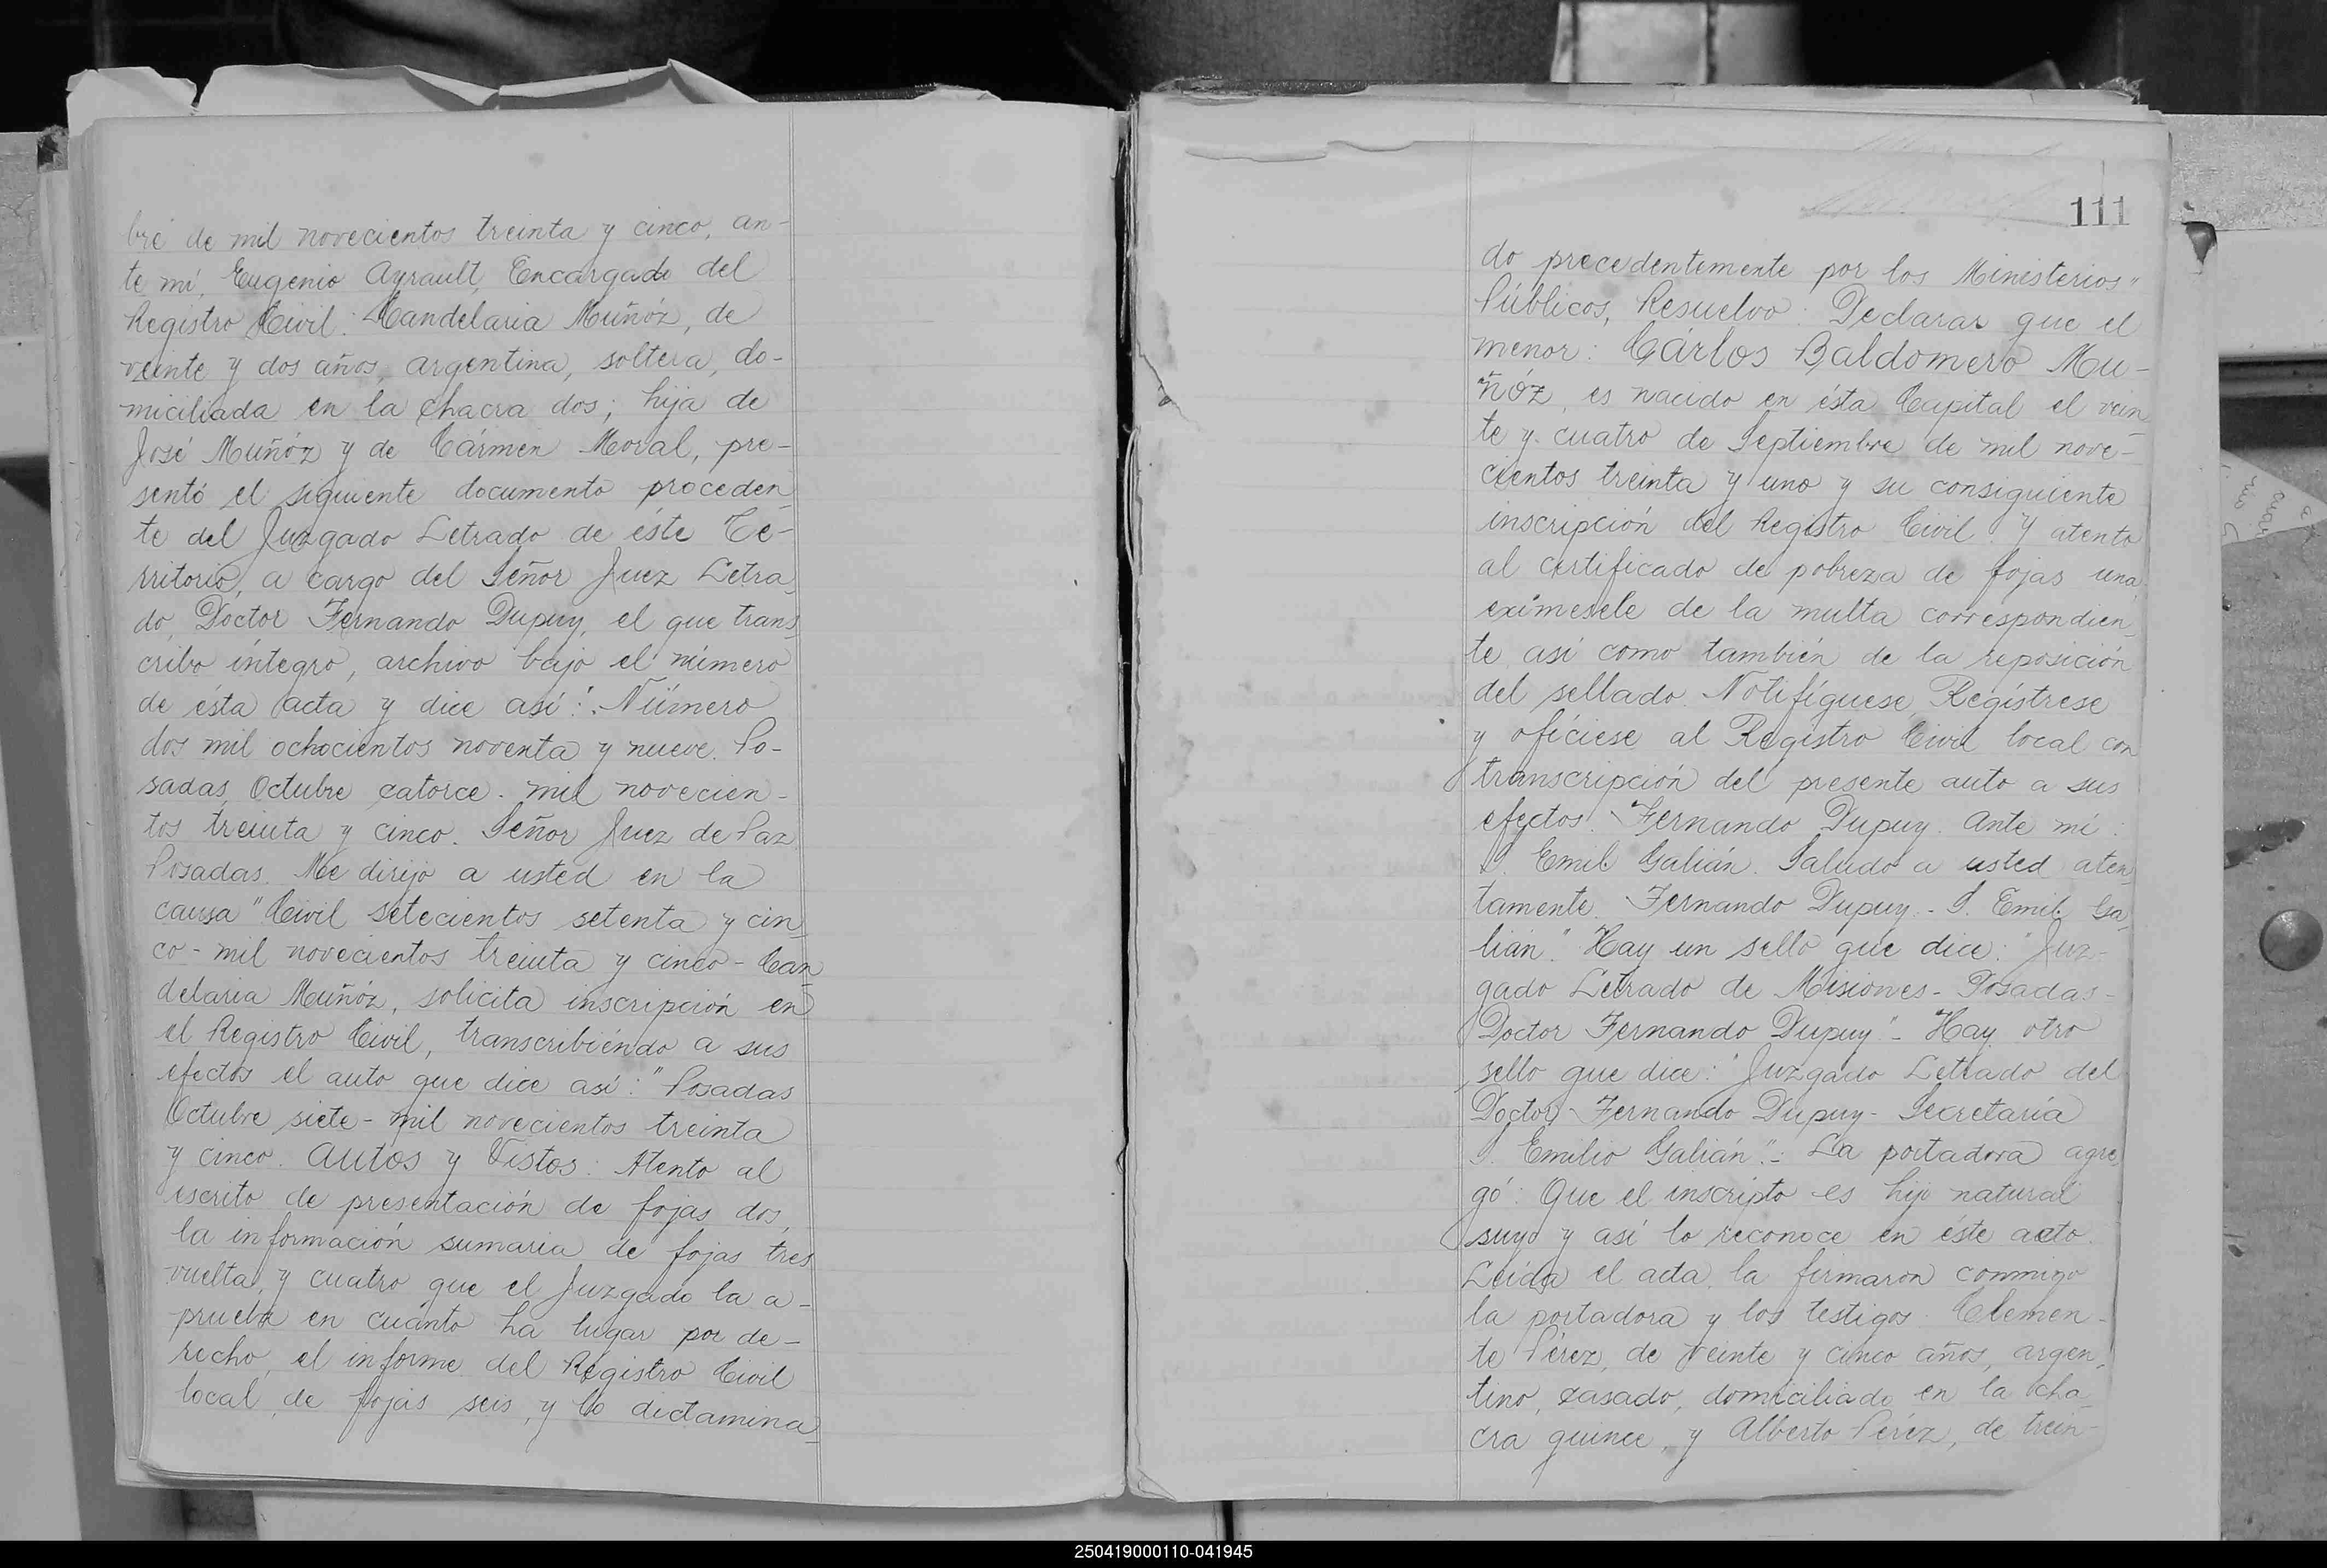 bre de mil novecientos treinta y cinco, an-
te mí, Eugenio Ayrault, Encargado del
Registro Civil: Candelaria Muñóz, de
veinte y dos años, argentina, soltera, do-
miciliada en la chacra dos; hija de
José Muñóz y de Cármen Moral, pre-
sentó el siguiente documento proceden
te del Juzgado Letrado de éste Te-
rritorio, a cargo del Señor Juez Letra
do, Doctor Fernando Dupuy, el que trans
cribo íntegro, archivo bajo el número
de ésta acta y dice así: "Número
dos mil ochocientos noventa y nueve. Po-
sadas, Octubre catorce. mil novecien-
tos treinta y cinco. Señor Juez de Paz
Posadas. Me dirijo a usted en la
causa "Civil setecientos setenta y cin
co - mil novecientos treinta y cinco - Can
delaria Muñóz, solicita inscripción en
el Registro Civil, transcribiéndo a sus
efectos el auto que dice así: "Posadas
Octubre siete - mil novecientos treinta
y cinco. Autos y Vistos: Atento al
escrito de presentación de fojas dos,
la información sumaria de fojas tres
vuelta, y cuatro que el Juzgado la a-
prueba en cuánto ha lugar por de-
recho, el informe del Registro Civil
local, de fojas seis, y lo dictamina
111
do precedentemente por los Ministerios"
Públicos, Resuelvo: Declarar que el
menor: Cárlos Baldomero Mu-
ñóz, es nacido en ésta Capital el vein
te y cuatro de Septiembre de mil nove-
cientos treinta y uno y su consiguiente
inscripción del Registro Civil. Y atento
al certificado de pobreza de fojas una
exímesele de la multa correspondien
te así como también de la reposición
del sellado. Notifíquese, Regístrese
y ofíciese al Registro Civil local con
transcripción del presente auto a sus
efectos. Fernando Dupuy. Ante mí:
S. Emil Galián. Saludo a usted aten
tamente. Fernando Dupuy. - S. Emil. Ga
lián." Hay un sello que dice: "Juz-
gado Letrado de Misiones - Posadas -
Doctor Fernando Dupuy" - Hay otro
sello que dice: "Juzgado Letrado del
Doctor Fernando Dupuy - Secretaría
S. Emilio Galián". - La portadora agre
gó: Que el inscripto es hijo natural
suyo y así lo reconoce en éste acto.
Leída el acta, la firmaron conmigo
la portadora y los testigos: Clemen-
te Pérez, de veinte y cinco años, argen
tino, casado, domiciliado en la cha
cra quince, y Alberto Pérez, de trein-
250419000110-041945